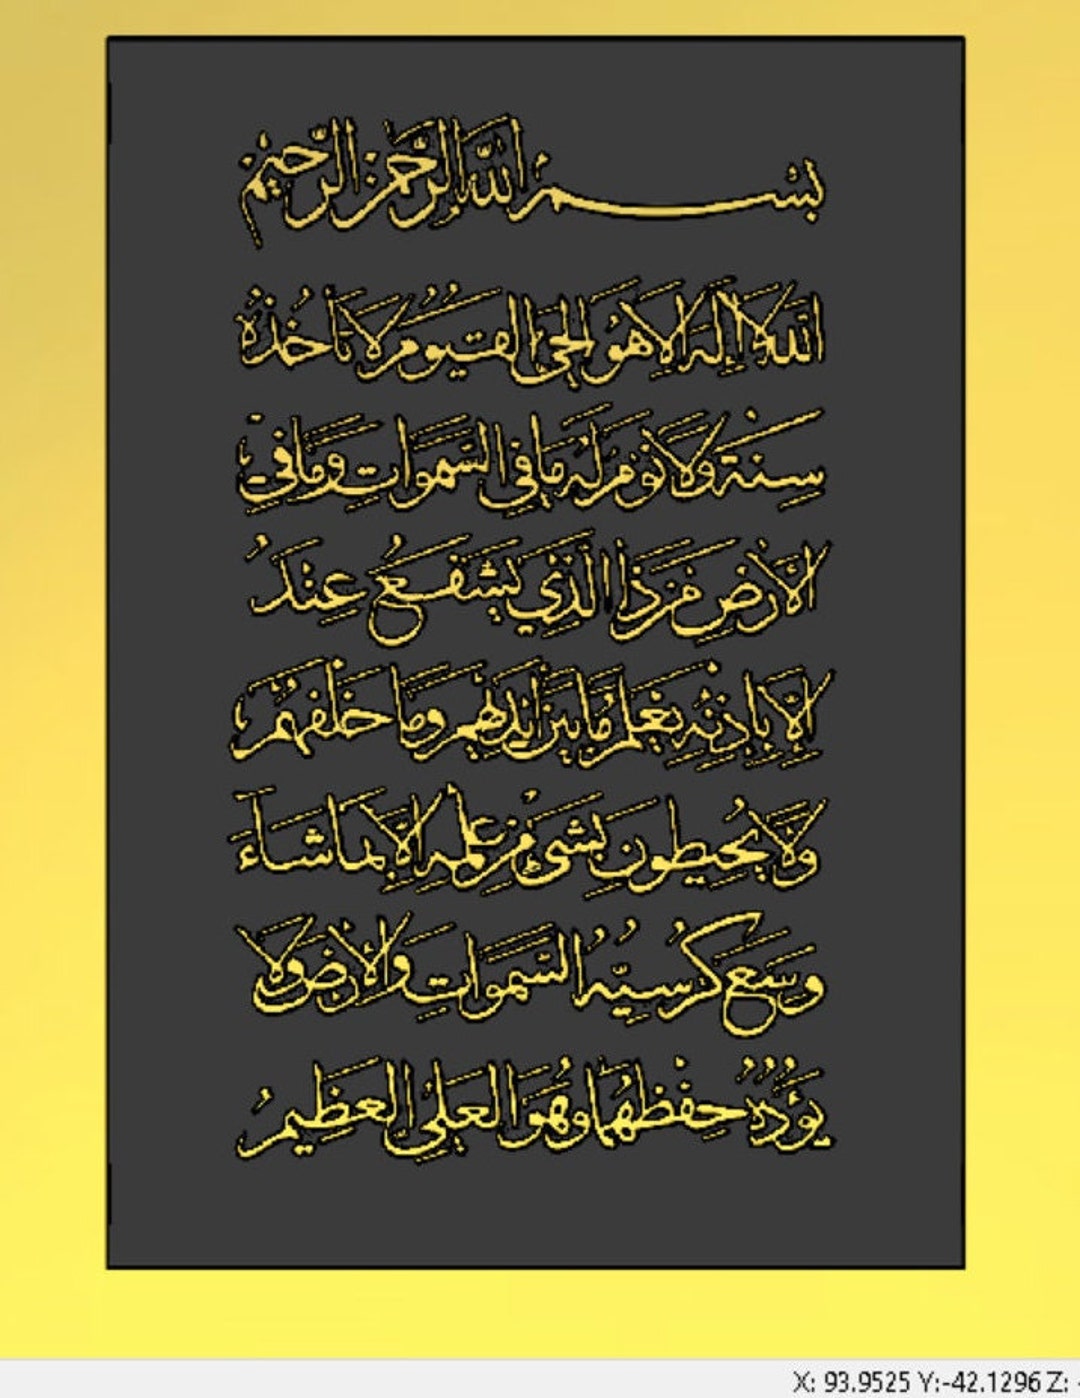 بسم الله الرحمن الرحيم
الله لا إله إلا هو الحي القيوم لا تأخذه
سنة ولا نوم له ما في السموات وما في
الأرض من ذا الذي يشفع عند
إلا بإذنه يعلم ما بين أيديهم وما خلفهم
ولا يحيطون بشيء من علمه إلا بما شاء
وسع كرسيه السموات والأرض ولا
يؤده حفظهما وهو العلي العظيم
X: 93.9525 Y:-42.1296 Z: